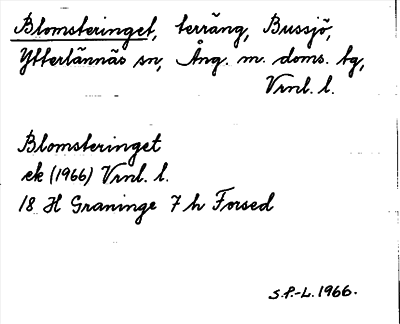 Blomsteringet, terräng, Bussjö,
Ytterlännäs sn, Ång. m. doms. tg,
Vrnl. l.
Blomsteringet
ek (1966) Vrnl. l.
18 H Graninge 7 h Forsed
S.P.-L. 1966.